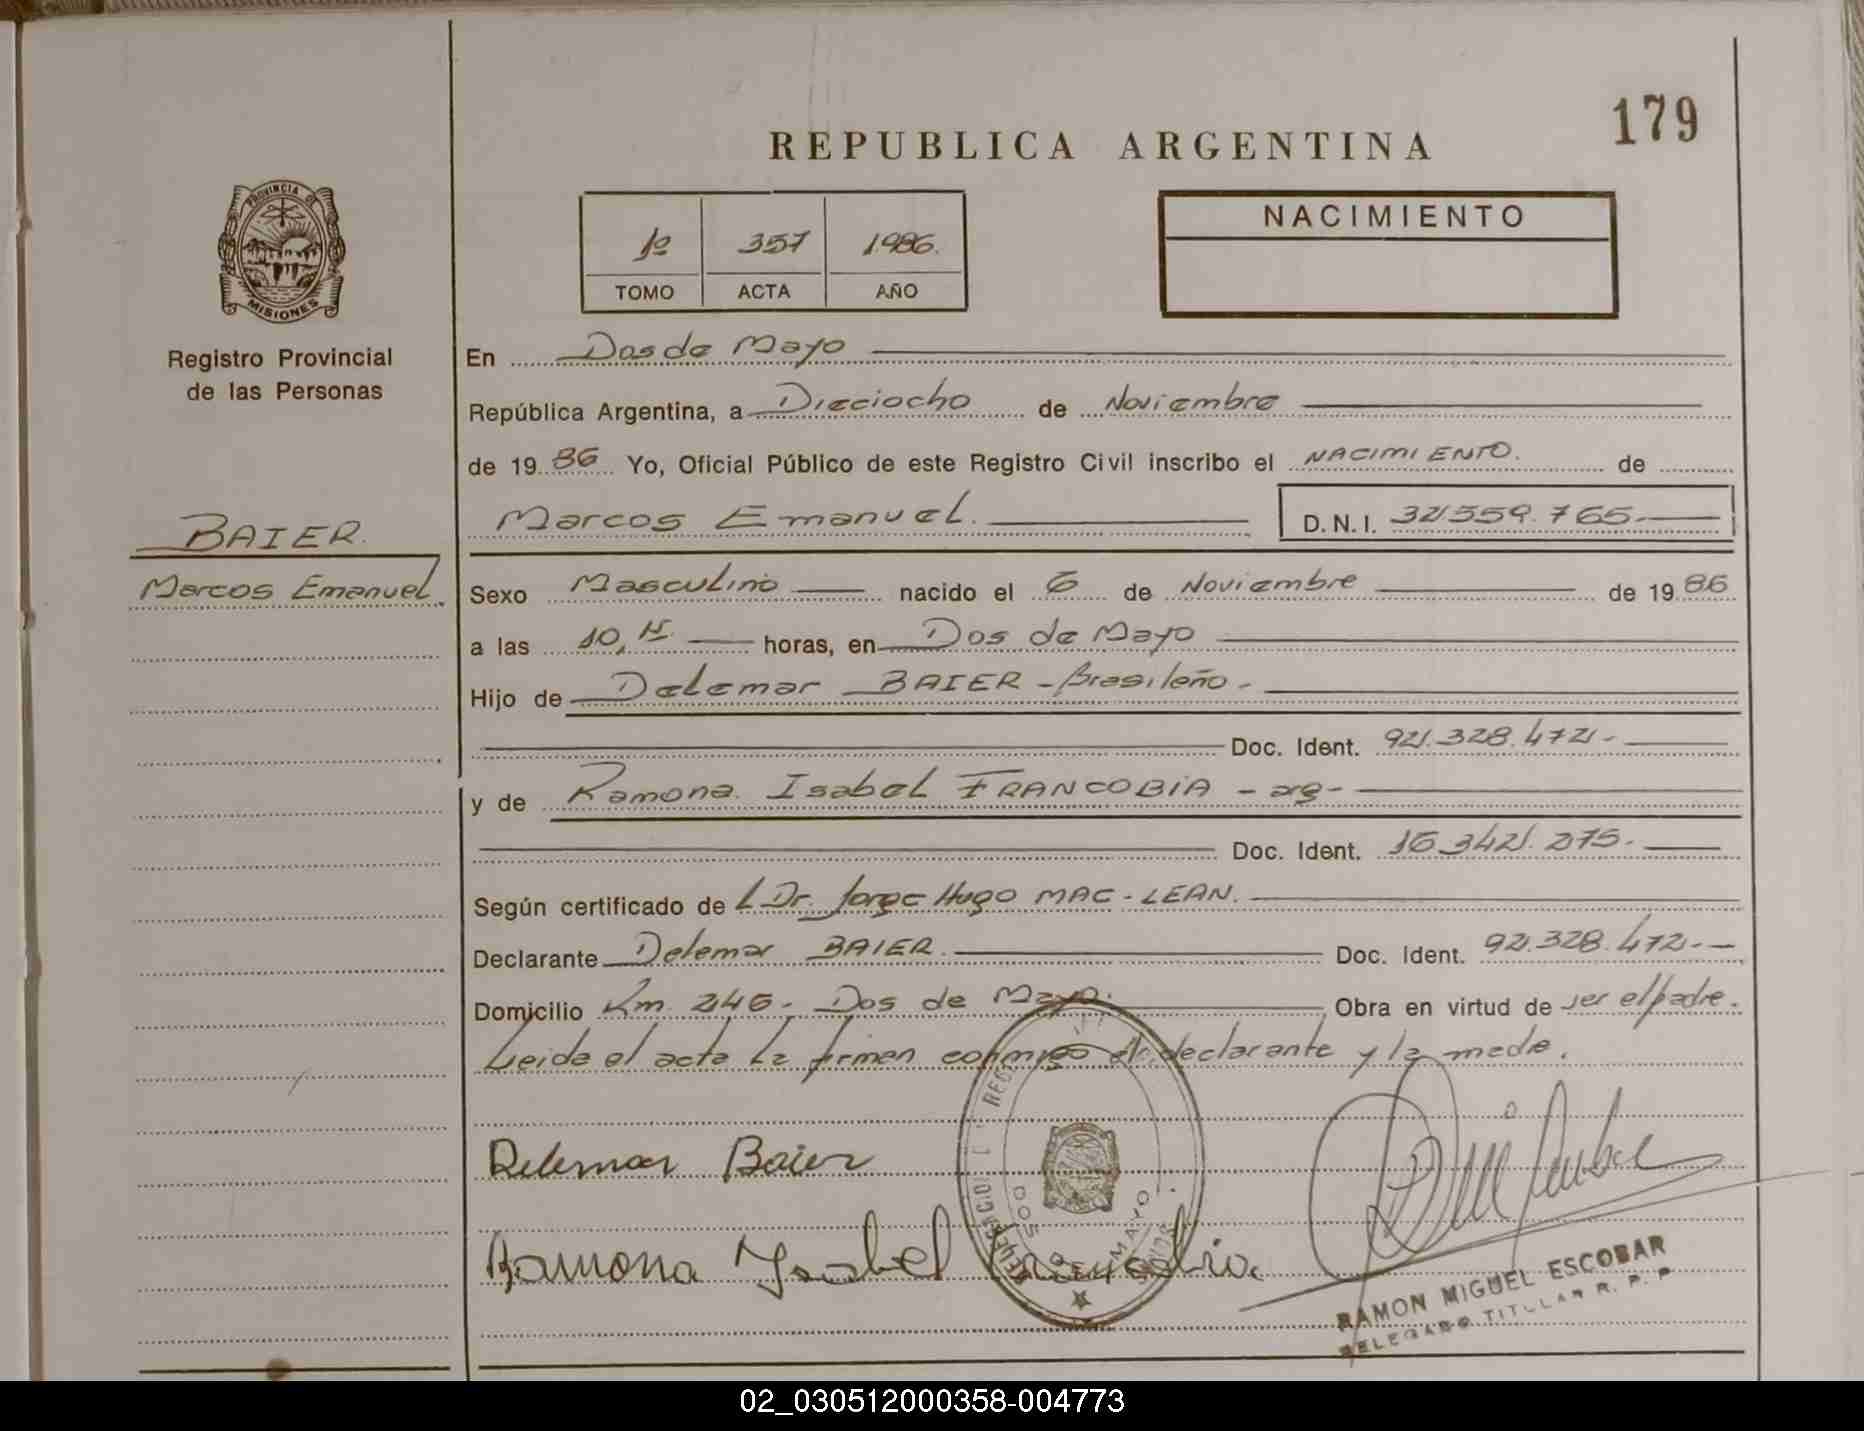 179
REPUBLICA ARGENTINA
PROVINCIA DE
MISIONES
1º 357 1986.
TOMO ACTA AÑO
NACIMIENTO
Registro Provincial
de las Personas
BAIER.
Marcos Emanuel.
En Dos de Mayo
República Argentina, a Dieciocho de Noviembre
de 19 86 Yo, Oficial Público de este Registro Civil inscribo el NACIMIENTO. de
Marcos Emanuel. D.N.I. 32.559.765.
Sexo Masculino nacido el 6 de Noviembre de 19 86
a las 10, H. horas, en Dos de Mayo
Hijo de Delemar BAIER - Brasileño -
Doc. Ident. 92.328.472 -
y de Ramona Isabel FRANCOBIA - arg -
Doc. Ident. 16.342.275.
Según certificado de l Dr. Jorge Hugo MAC - LEAN.
Declarante Delemar BAIER. Doc. Ident. 92.328.472.
Domicilio Km. 246 - Dos de Mayo. Obra en virtud de ser el padre.
Leida el acta la firman conmigo el declarante y la madre.
Delemar Baier
Ramona Ysabel
DOS DE MAYO
RAMON MIGUEL ESCOBAR
DELEGADO TITULAR R. P. P
02_030512000358-004773